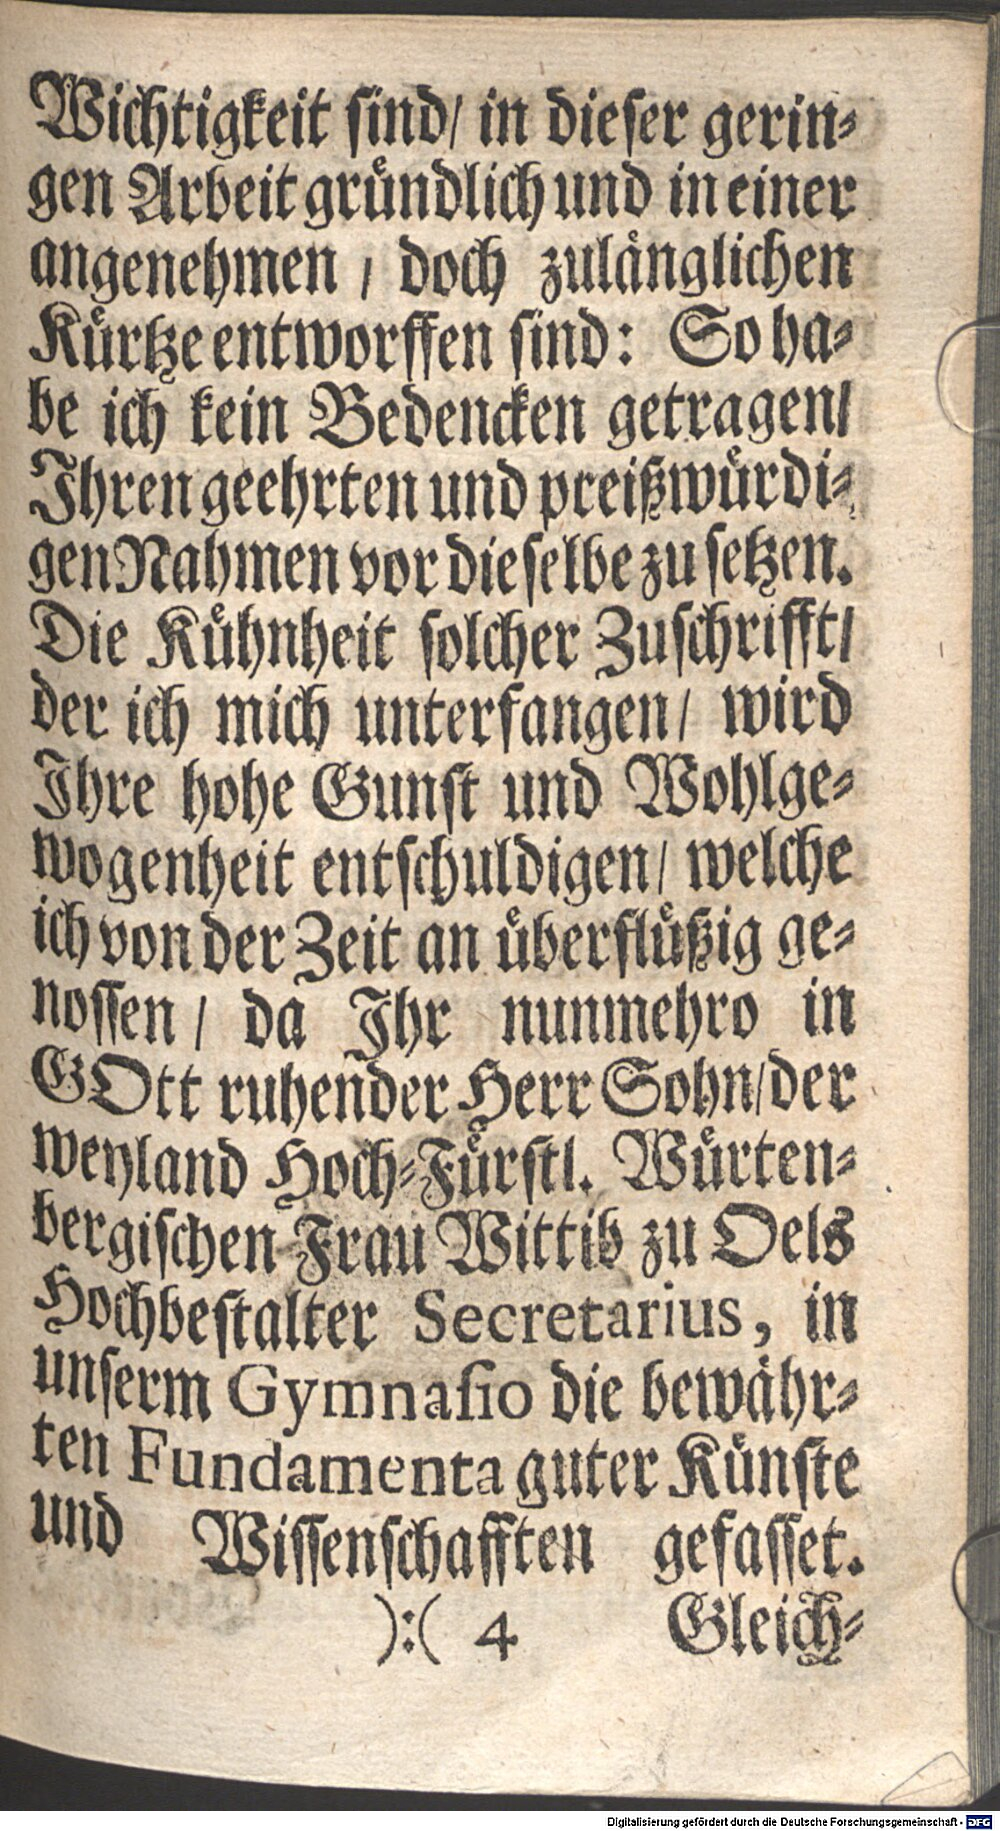 Wichtigkeit sind/ in dieser gerin-
gen Arbeit gründlich und in einer
angenehmen / doch zulänglichen
Kürtze entworffen sind: So ha-
be ich kein Bedencken getragen/
Ihren geehrten und preißwürdi-
gen Nahmen vor dieselbe zu setzen.
Die Kühnheit solcher Zuschrifft/
der ich mich unterfangen/ wird
Ihre hohe Gunst und Wohlge-
wogenheit entschuldigen/ welche
ich von der Zeit an überflüßig ge-
nossen / da Ihr nunmehro in
GOtt ruhender Herr Sohn/der
weyland Hoch-Fürstl. Würten-
bergischen Frau Wittib zu Oels
Hochbestalter Secretarius, in
unserm Gymnasio die bewähr-
ten Fundamenta guter Künste
und Wissenschafften gefasset.
):( 4 Gleich-
Digitalisierung gefördert durch die Deutsche Forschungsgemeinschaft - DFG